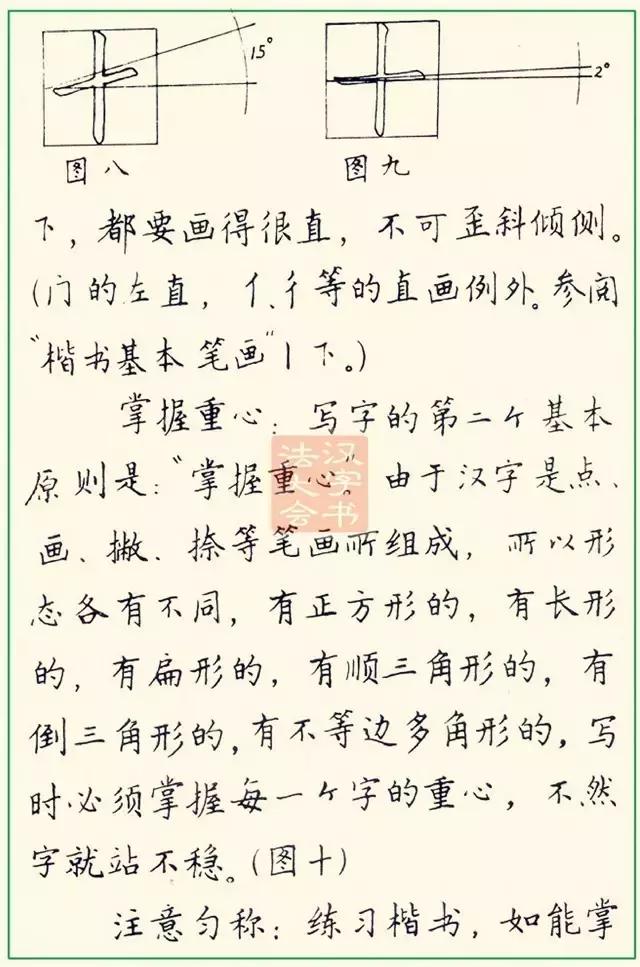 15°
2°
图八
图九
下，都要画得很直，不可歪斜倾侧。
(门的左直，亻、彳等的直画例外。参阅
“楷书基本笔画”丨下。)
掌握重心：写字的第二个基本
原则是：“掌握重心”。由于汉字是点、
画、撇、捺等笔画所组成，所以形
态各有不同，有正方形的，有长形
的，有扁形的，有顺三角形的，有
倒三角形的，有不等边多角形的，写
时必须掌握每一个字的重心，不然
字就站不稳。(图十)
注意匀称：练习楷书，如能掌
汉字书
法大会